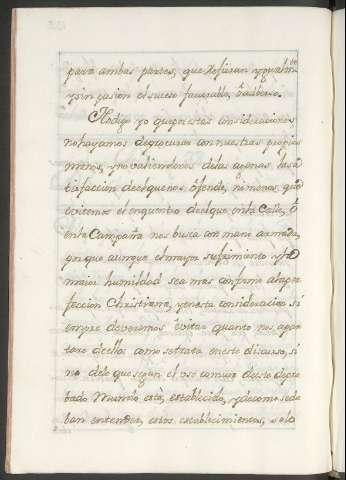 para ambas partes, que refieran ygualm.te
y sin pasion el suceso favorable, ò adverso.
No digo yo que por estas consideraciones
no hayamos de procurar con nuestras propias
manos, y no valiendonos de las agenas, la sa
tisfaccion de el que nos ofende, ni menos que
evitemos el enquentro de el que en la Calle, ò
en la Campaña nos busca con mano armada,
porque aunque el mayor sufrimiento y la
maior humildad sea mas conforme a la per
feccion Christiana, y en esta consideracion si
empre devemos evitar quanto nos apar
tare de ella: como se trata en este discurso, si
no de lo que segun el uso comun de este depra
bado Mundo està, establecido, y de como se de
ban entender, estos establecimientos, solo